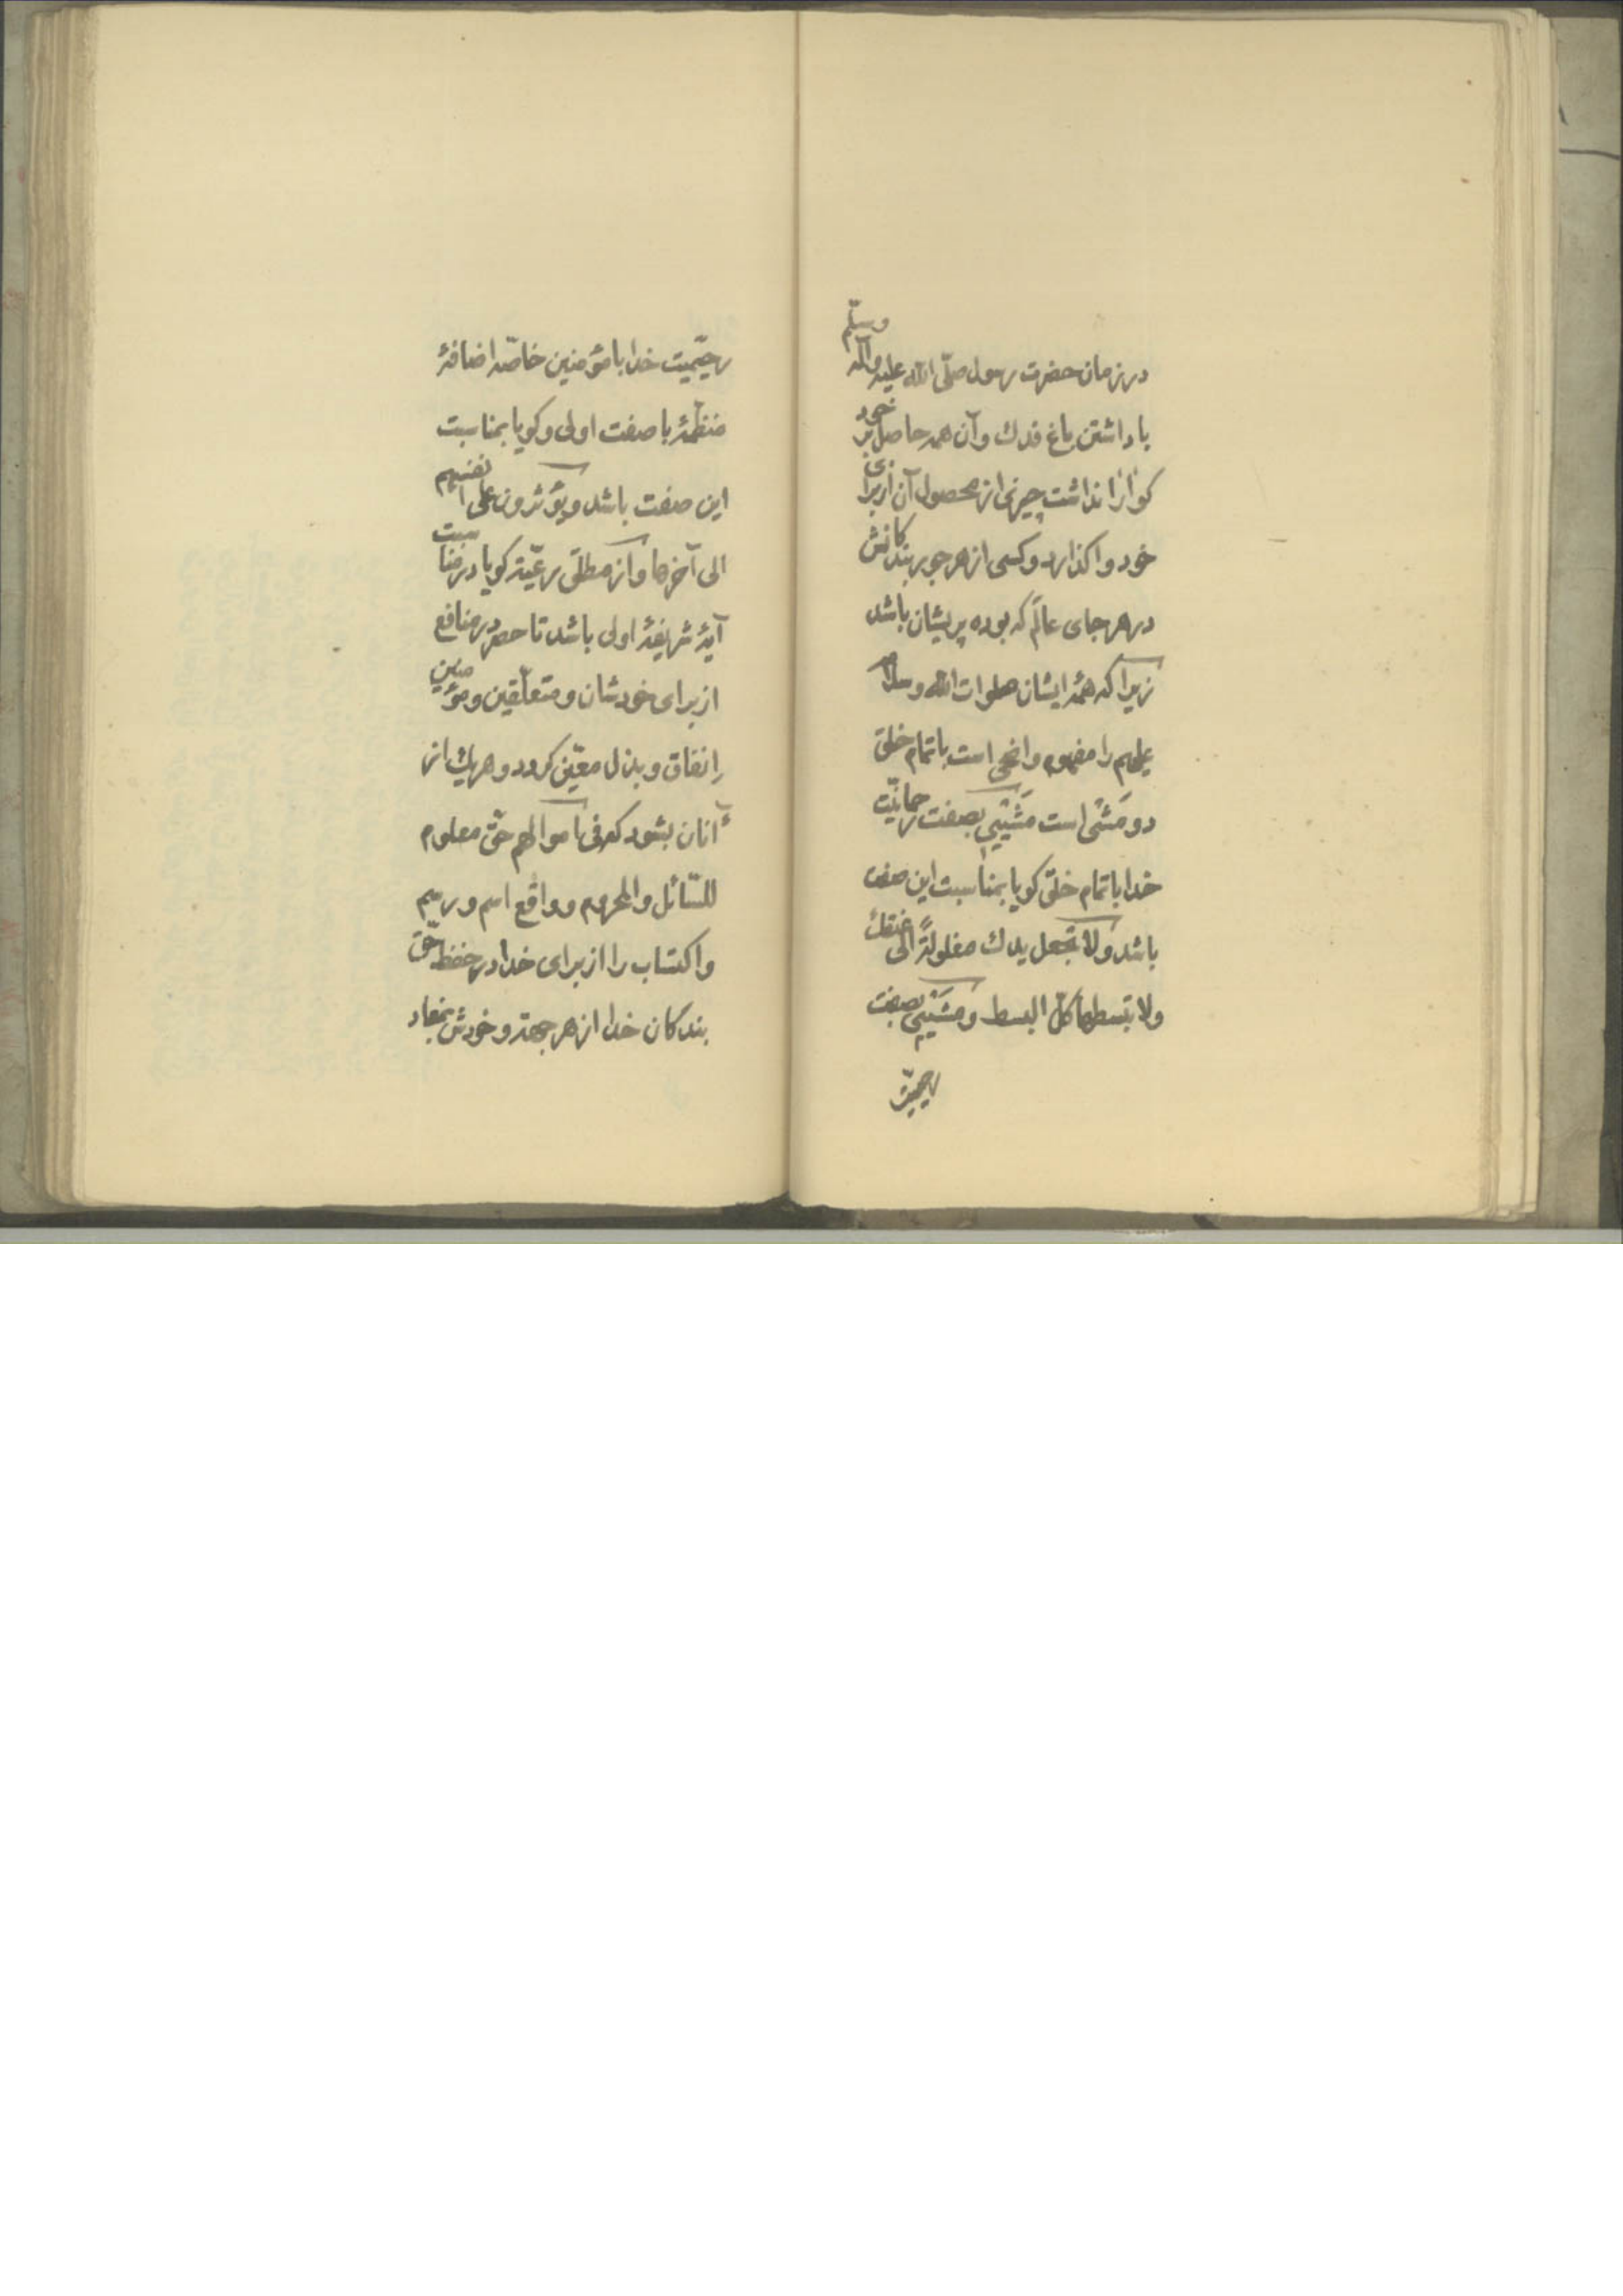 در زمان حضرت رسول صلّی الله علیه وآله وسلّم
با داشتن باغ فدك وآن همه حاصل بر خود
كوارا نداشت چیزی از محصول آن از برای
خود واكذارد وكسی از هر جور بندكانش
در هر جای عالم كه بوده پریشان باشد
زیرا كه همهٔ ایشان صلوات الله وسلامه
علیهم را مفهوم واضحی است با تمام خلق
دو مَشی است مَشیی بصفت رحمانیّت
خدا با تمام خلق كویا بمناسبت این صفت
باشد ولا تجعل یدك مغلولةً الی عنقك
ولا تبسطها كلّ البسط ومَشیی بصفت
رحیمیّت
رحیمیّت خدا با مؤمنین خاصّه اضافهٔ
منظمهٔ با صفت اولی وكویا بمناسبت
این صفت باشد ویؤثرون علی انفسهم
الی آخرها واز مطلق رعیّته كویا در مناسبت
آیهٔ شریفهٔ اولی باشد تا حصر در منافع
از برای خودشان ومتعلّقین ومؤمنین
را نفاق وبذل معیّن كردد وهر یك از
آنان بشود كه فی اموالهم حقّ معلوم
للسّائل والمحروم وواقع اسم ورسم
واكتساب را از برای خدا در حفظ حقّ
بندكان خدا از هر جهة وخودش بمفاد